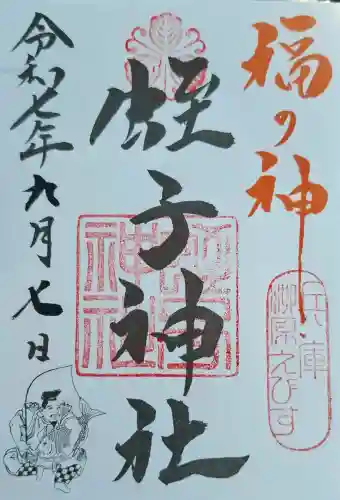 福の神
兵庫
柳原えびす
蛭子神社
令和七年九月七日